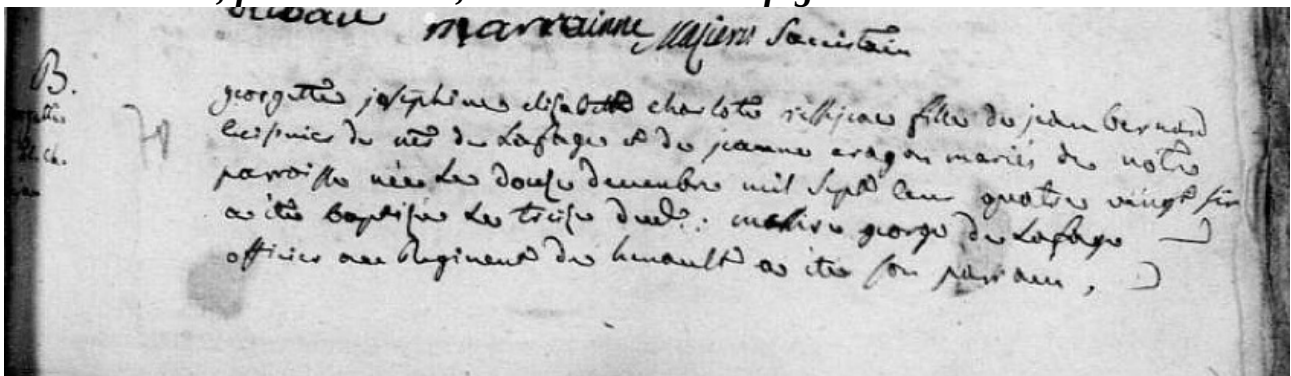 marrainne Majieres Sacristain
B.
georgette josephine elisabeth charlote fille de jean bernard
cuisinier de mr de Lafage et de jeanne aragon mariés de notre
parroisse née Le douze decembre mil sept cens quatre vingt six
a ete baptisée Le treize dud.: messire george De Lafage
officier au Regiment du henault a ete son parrain,